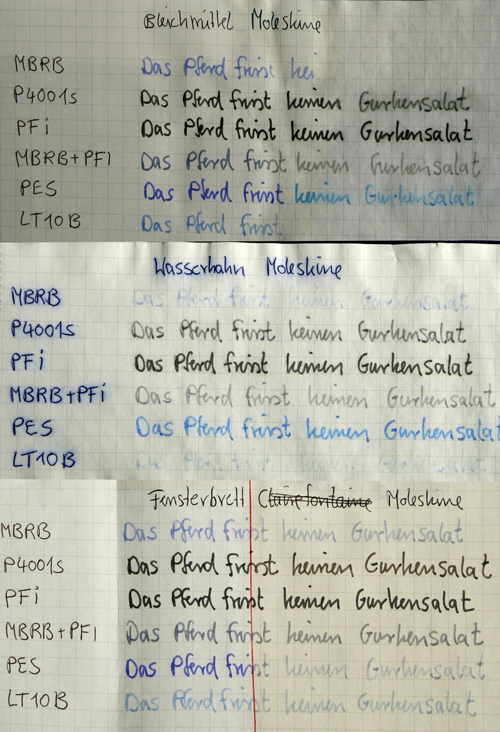 Bleichmittel Moleskine
MBRB Das Pferd frisst kei
P4001s Das Pferd frisst keinen Gurkensalat
PFi Das Pferd frisst keinen Gurkensalat
MBRB+PFI Das Pferd frisst keinen Gurkensalat
PES Das Pferd frisst keinen Gurkensalat
LT10B Das Pferd frisst
Wasserhahn Moleskine
MBRB Das Pferd frisst keinen Gurkensalat
P4001s Das Pferd frisst keinen Gurkensalat
PFi Das Pferd frisst keinen Gurkensalat
MBRB+PFi Das Pferd frisst keinen Gurkensalat
PES Das Pferd frisst keinen Gurkensalat
LT10B Das Pferd frisst keinen Gurkensalat
Fensterbrett Clairefontaine Moleskine
MBRB Das Pferd frisst keinen Gurkensalat
P4001s Das Pferd frisst keinen Gurkensalat
PFi Das Pferd frisst keinen Gurkensalat
MBRB+PFI Das Pferd frisst keinen Gurkensalat
PES Das Pferd frisst keinen Gurkensalat
LT10B Das Pferd frisst keinen Gurkensalat